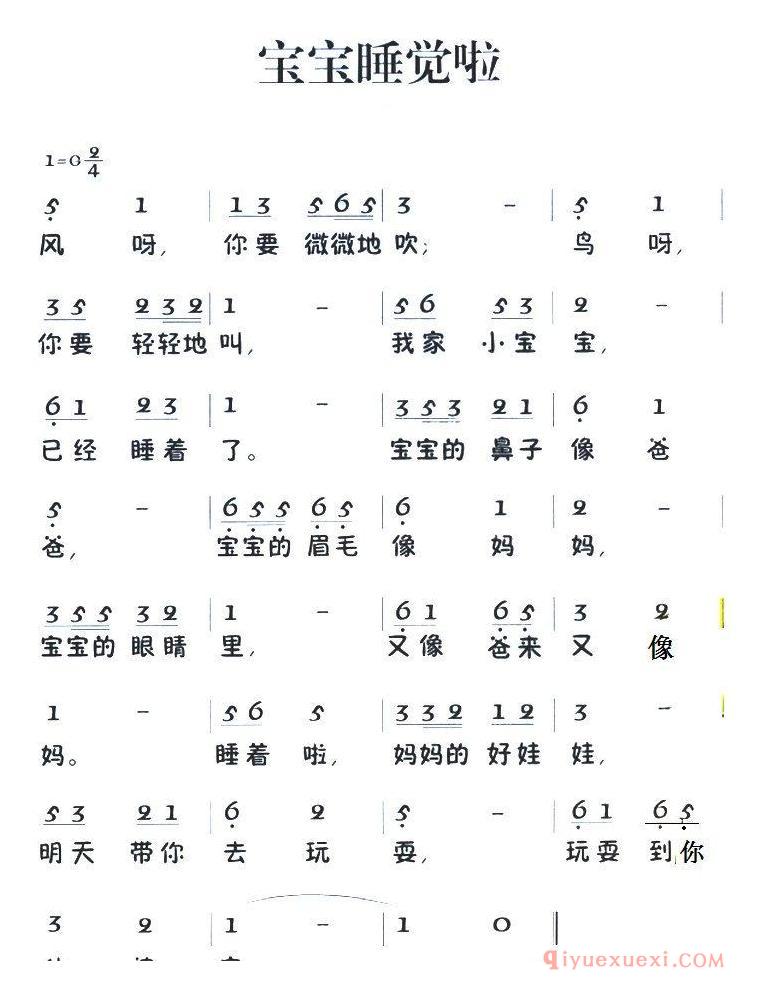 宝宝睡觉啦
1=C 2/4
5 1 | 13 565 | 3 - | 5 1 |
风呀,你要微微地吹;鸟呀,
35 232 | 1 - | 56 53 | 2 - |
你要轻轻地叫,我家小宝宝,
61 23 | 1 - | 353 21 | 6 1 |
已经睡着了。宝宝的鼻子像爸
5 - | 655 65 | 6 1 | 2 - |
爸,宝宝的眉毛像妈妈,
355 32 | 1 - | 61 65 | 3 2 |
宝宝的眼睛里,又像爸来又像
1 - | 56 5 | 332 12 | 3 - |
妈。睡着啦,妈妈的好娃娃,
53 21 | 6 2 | 5 - | 61 65
明天带你去玩耍,玩耍到你
3 2 | 1 - | 1 0 ||
qiyuexuexi.com